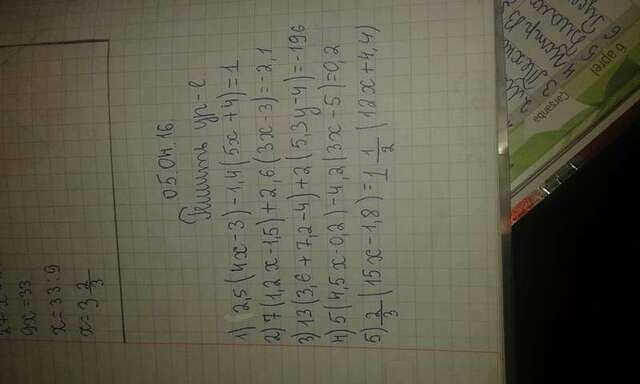 9x=33
x=33:9
x=3 2/3
05.04.16.
Решить ур-е
1) 2,5(4x-3)-1,4(5x+4)=1
2) 7(1,2x-1,5)+2,6(3x-3)=-2,1
3) 13(3,6+7,2-4)+2(5,3y-4)=-196
4) 5(4,5x-0,2)-4,2(3x-5)=0,2
5) 2/3(15x-1,8)=1 1/2(12x+4,4)